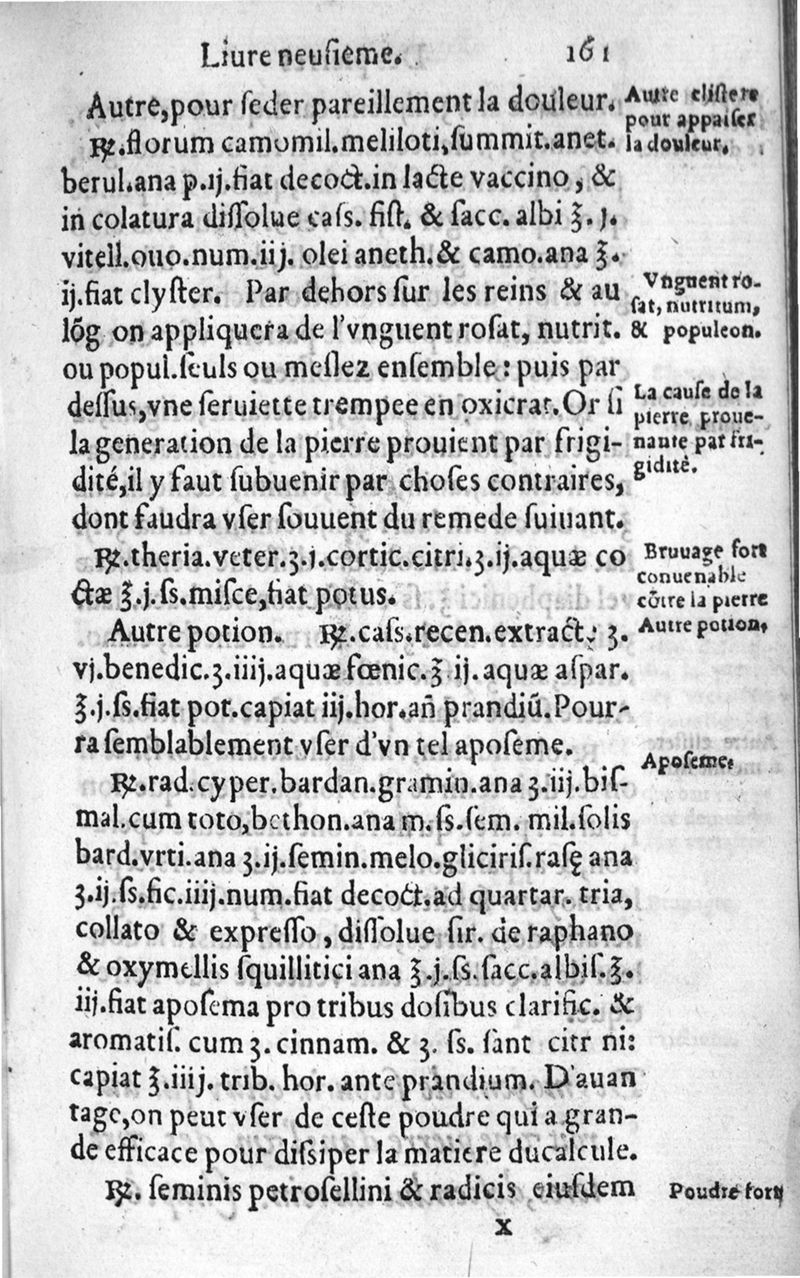 Liure neusieme. 161
Autre,pour ſeder pareillement la douleur.
℞.florum camomil.meliloti,ſummit.anet.
berul.ana p.ij.fiat decoct.in lacte vaccino, &
in colatura diſſolue caſs. fiſt. & ſacc. albi ℥. j.
vitell.ouo.num.iij. olei aneth.& camo.ana ℥.
ij.fiat clyſter. Par dehors ſur les reins & au
lõg on appliquera de l'vnguent roſat, nutrit.
ou popul.ſeuls ou meſlez enſemble : puis par
deſſus,vne ſeruiette trempee en oxicrat.Or ſi
la generation de la pierre prouient par frigi-
dité,il y faut ſubuenir par choſes contraires,
dont faudra vſer ſouuent du remede ſuiuant.
℞.theria.veter.ʒ.j.cortic.citri.ʒ.ij.aquæ co
ctæ ℥.j.ſs.miſce,fiat potus.
Autre potion. ℞.caſs.recen.extract. ʒ.
vj.benedic.ʒ.iiij.aquæ fœnic.℥ ij.aquæ aſpar.
℥.j.ſs.fiat pot.capiat iij.hor.añ prandiũ.Pour-
ra ſemblablement vſer d'vn tel apoſeme.
℞.rad.cyper.bardan.gramin.ana ʒ.iij.biſ-
mal.cum toto,bethon.ana m.ſs.ſem. mil.ſolis
bard.vrti.ana ʒ.ij.ſemin.melo.gliciriſ.raſę ana
ʒ.ij.ſs.fic.iiij.num.fiat decoct.ad quartar. tria,
collato & expreſſo, diſſolue ſir. de raphano
& oxymellis ſquillitici ana ℥.j.ſs.ſacc.albiſ.℥.
iij.fiat apoſema pro tribus doſibus clarific. &
aromatiſ. cum ʒ. cinnam. & ʒ. ſs. ſant citr ni:
capiat ℥.iiij. trib. hor. ante prandium. D'auan
tage,on peut vſer de ceſte poudre qui a gran-
de efficace pour diſsiper la matiere ducalcule.
℞. ſeminis petroſellini & radicis eiuſdem
X
Autre cliſtere
pour appaiſer
la douleur.
Vnguent ro-
ſat, nutritum,
& populeon.
La cauſe de la
pierre proue-
nante par fri-
gidité.
Bruuage fort
conuenable
cõtre la pierre
Autre potion,
Apoſeme,
Poudre fort